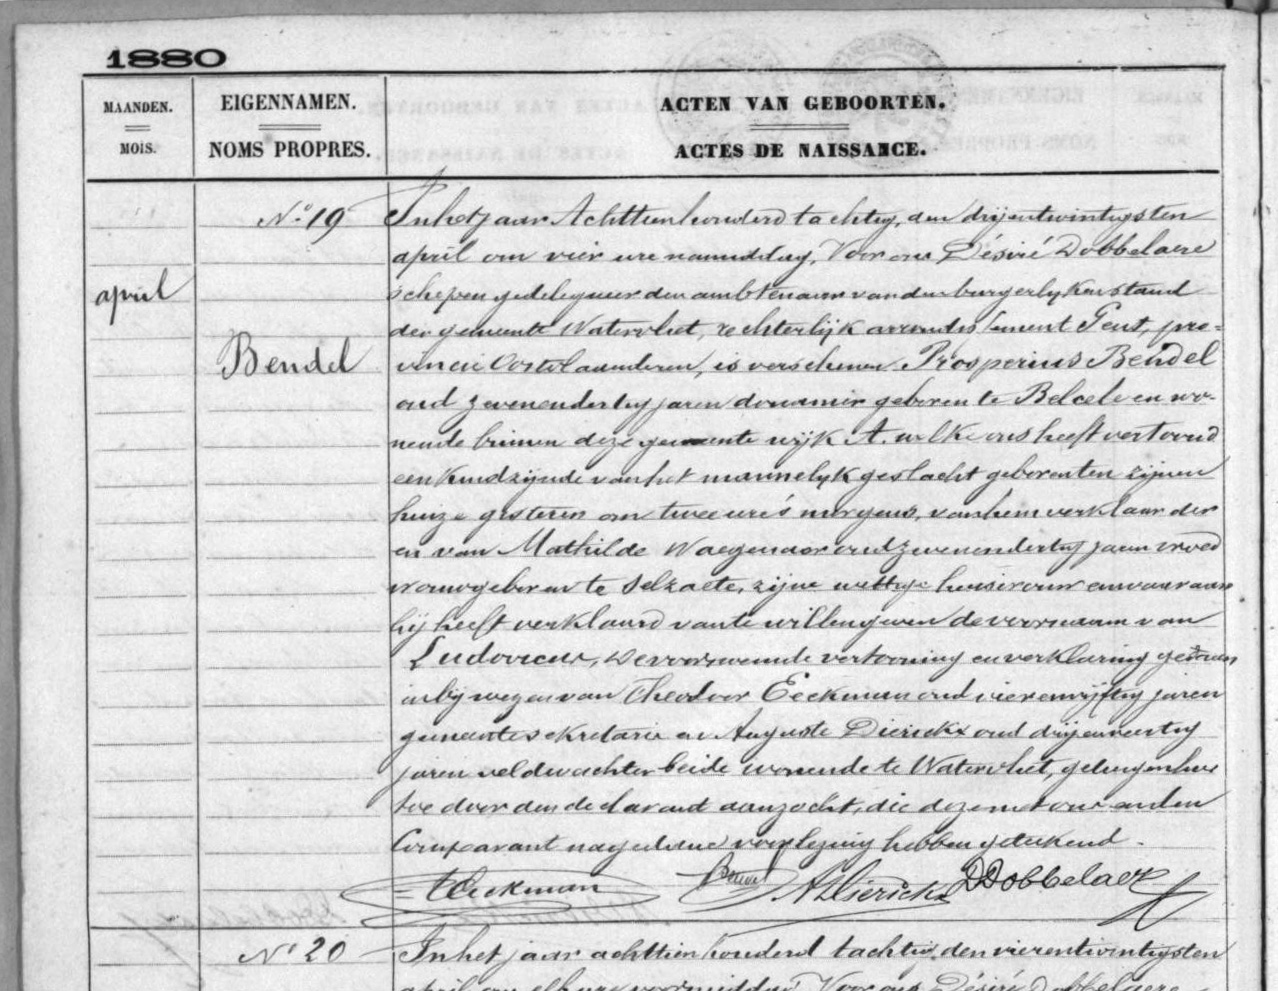 1880
MAANDEN.
MOIS.
EIGENNAMEN.
NOMS PROPRES.
ACTEN VAN GEBOORTEN.
ACTES DE NAISSANCE.
N.º 19
april
Bendel
In het jaar Achttienhonderd tachtig, den drijentwintigsten
april om vier ure namiddag, Voor ons Désiré Dobbelaere
schepen gedelegueerden ambtenaar van den burgerlyken stand
der gemeente Watervliet, rechterlijk arrondissement Gent, pro-
vincie Oostvlaanderen, is verschenen Prosperius Bendel
oud zevenendertig jaren douanier geboren te Belcele en wo-
nende binnen deze gemeente wijk A. welke ons heeft vertoond
een kind zijnde van het mannelyk geslacht geboren ten zijnen
huize gisteren om twee ure 's morgens, van hem verklaarder
en van Mathilde Waegenaer oud zevenendertig jaren vroed
vrouw geboren te Selzaete, zijne wettige huisvrouw en waaraan
hij heeft verklaard van te willen geven de voornaam van
Ludovicus, de voornoemde vertooning en verklaring gedaan
in bijwezen van Theodoor Eeckman oud vierenvijftig jaren
gemeentesekretaris en Auguste Dierickx oud drijenveertig
jaren veldwachter beide wonende te Watervliet, getuigen hier
toe door den declarant aanzocht, die deze met ons en den
Comparant na gedane voorlezing hebben geteekend.
T Eeckman Bendel A Dierickx D Dobbelaere
N.º 20
In het jaar achttien honderd tachtig, den vierentwintigsten
april om elf ure voormiddag, Voor ons Désiré Dobbelaere